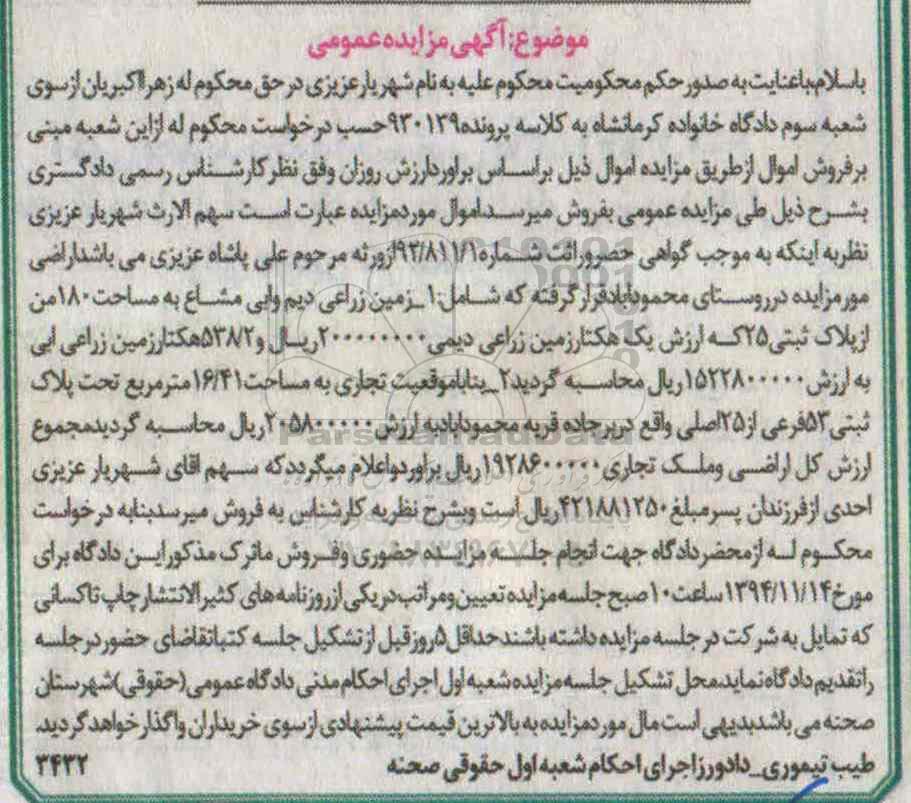 موضوع:آگهی مزایده عمومی
باسلام،باعنایت به صدور حکم محکومیت محکوم علیه به نام شهریار عزیزی در حق محکوم له زهرااکبریان ازسوی
شعبه سوم دادگاه خانواده کرمانشاه به کلاسه پرونده۹۳۰۱۳۹حسب درخواست محکوم له ازاین شعبه مبنی
برفروش اموال ازطریق مزایده اموال ذیل براساس براوردارزش روزان وفق نظر کارشناس رسمی دادگستری
بشرح ذیل طی مزایده عمومی بفروش میرسد.اموال موردمزایده عبارت است سهم الارث شهریار عزیزی
نظربه اینکه به موجب گواهی حصروراثت شماره۹۲/۸۱۱/۱ازورثه مرحوم علی پاشاه عزیزی می باشداراضی
مورمزایده درروستای محمودآبادقرارگرفته که شامل:۱_زمین زراعی دیم وابی مشاع به مساحت۱۸۰من
ازپلاک ثبتی۲۵که ارزش یک هکتارزمین زراعی دیمی۲۰۰۰۰۰۰۰۰ریال و۵۳۸/۲هکتارزمین زراعی ابی
به ارزش۱۵۲۲۸۰۰۰۰۰ریال محاسبه گردید۲_بناباموقعیت تجاری به مساحت۱۶/۴۱مترمربع تحت پلاک
ثبتی۵۳فرعی از۲۵اصلی واقع دربرجاده قریه محمودابادبه ارزش۲۰۵۸۰۰۰۰۰ریال محاسبه گردیدمجموع
ارزش کل اراضی وملک تجاری۱۹۲۸۶۰۰۰۰۰ریال براورداعلام میگرددکه سهم اقای شهریار عزیزی
احدی ازفرزندان پسرمبلغ۴۲۱۸۸۱۲۵۰ریال است وبشرح نظریه کارشناس به فروش میرسدبنابه درخواست
محکوم له ازمحضردادگاه جهت انجام جلسه مزایده حضوری وفروش ماترک مذکوراین دادگاه برای
مورخ۱۳۹۴/۱۱/۱۴ساعت۱۰صبح جلسه مزایده تعیین ومراتب دریکی ازروزنامه های کثیرالانتشارچاپ تاکسانی
که تمایل به شرکت در جلسه مزایده داشته باشندحداقل۵روزقبل ازتشکیل جلسه کتباتقاضای حضوردرجلسه
راتقدیم دادگاه نماید.محل تشکیل جلسه مزایده شعبه اول اجرای احکام مدنی دادگاه عمومی(حقوقی)شهرستان
صحنه می باشدبدیهی است مال موردمزایده به بالاترین قیمت پیشنهادی ازسوی خریداران واگذارخواهدگردید.
طیب تیموری_دادورزاجرای احکام شعبه اول حقوقی صحنه ۳۴۳۲
ParsNamadData